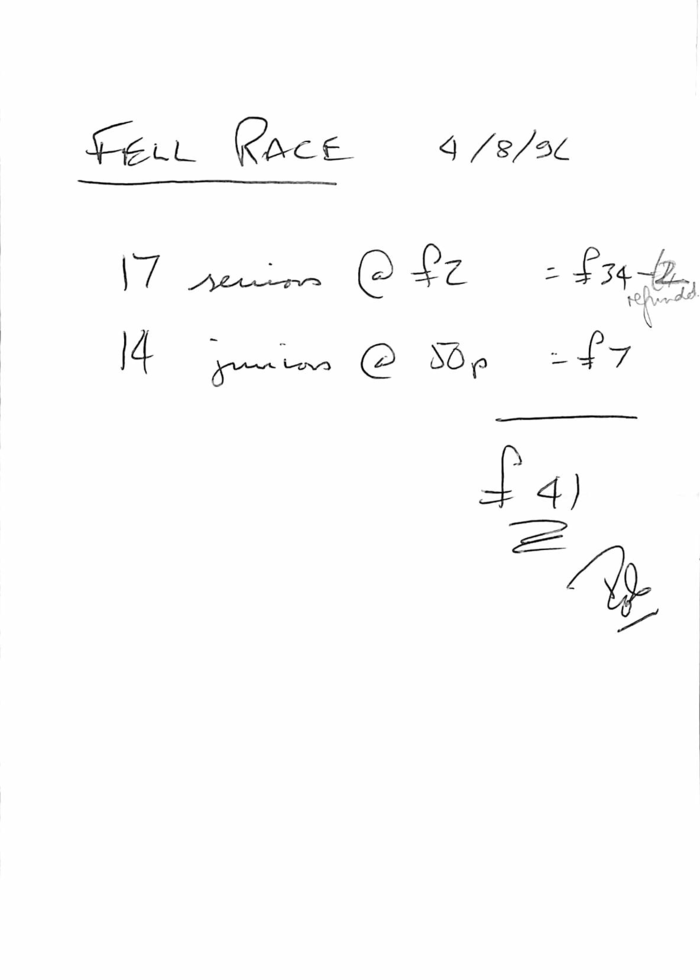 FELL RACE 4/8/96
17 seniors @ £2 = £34 - £2
refunded
14 juniors @ 50p = £7
£41